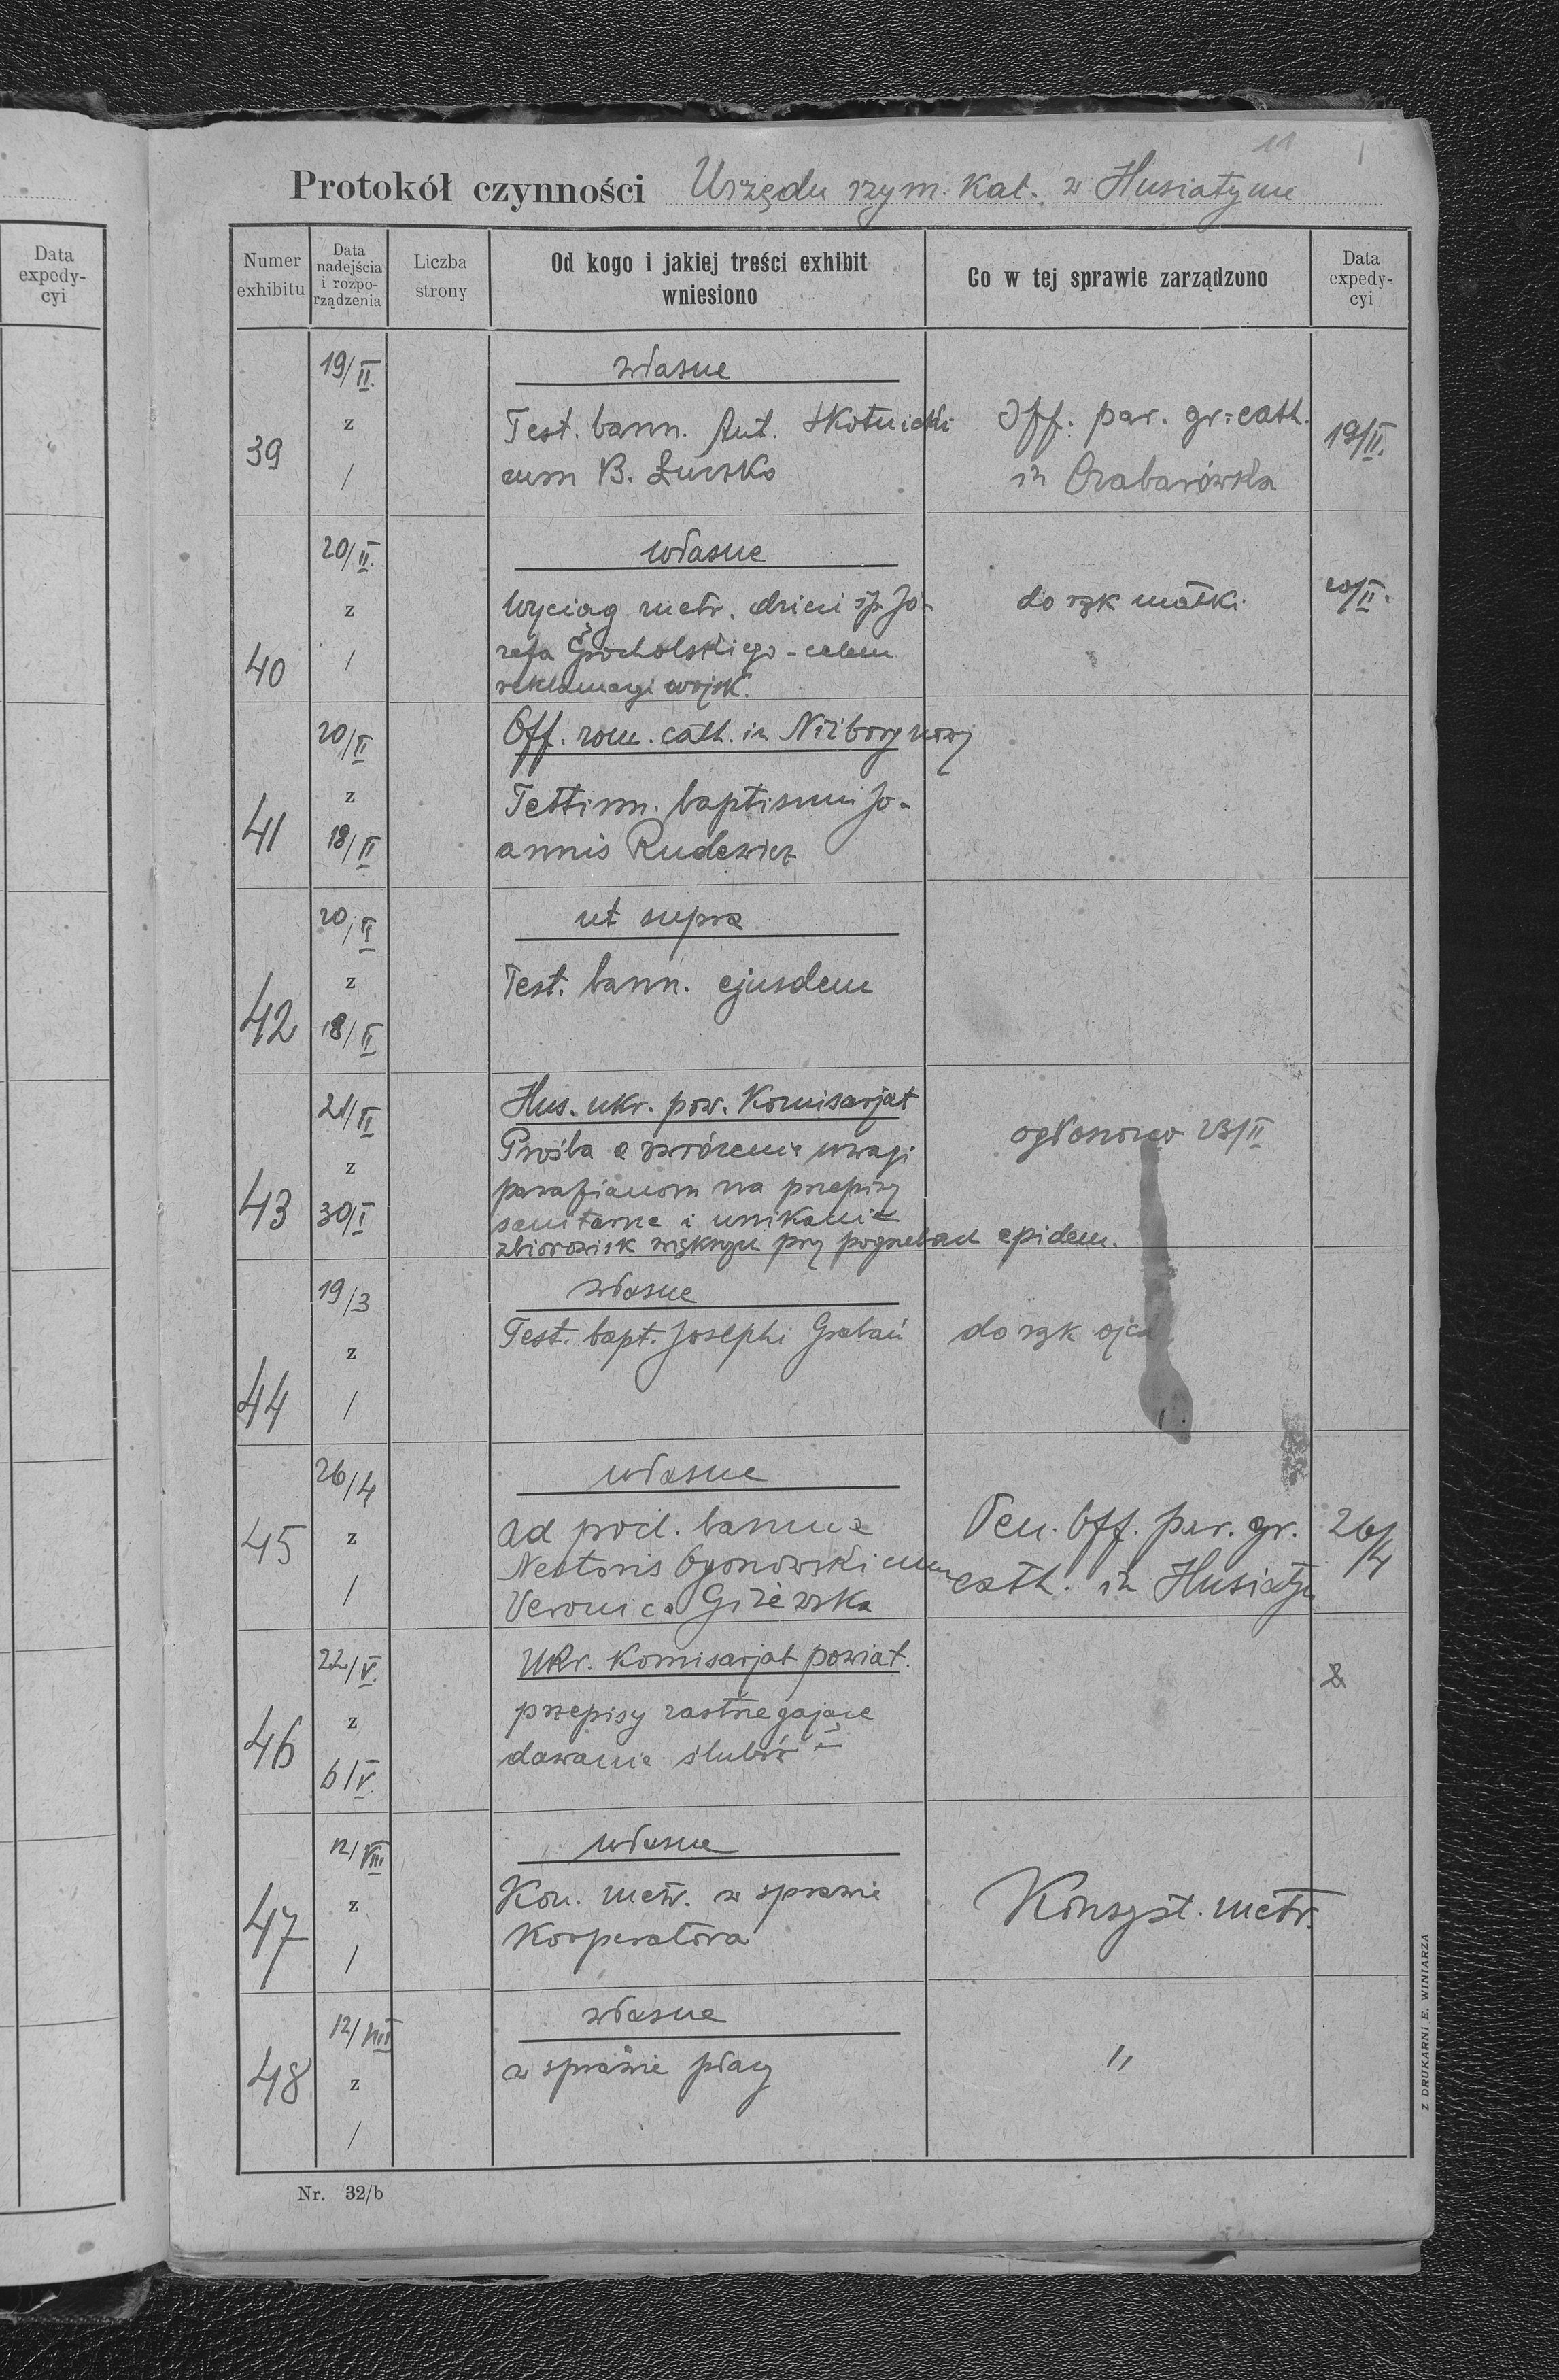 11
Protokół czynności Urzędu rzym. kat. w Husiatynie
Data
expedy-
cyi
Numer
exhibitu
Data
nadejścia
i rozpo-
rządzenia
Liczba
strony
Od kogo i jakiej treści exhibit
wniesiono
Co w tej sprawie zarządzono
Data
expedy-
cyi
39
19/II.
z
/
własne
Test. bann. Ant. Skotnicki
cum B. Łursko
Off. par. gr. cath.
in Czabarówka
19/II.
40
20/II.
z
/
własne
Wyciąg metr. dzieci śp. Jó-
zefa Grocholskiego - celem
reklamacyi wojsk.
do rąk matki.
20/II.
41
20/II
z
18/II
Off. rom. cath. in Niżborg nowy
Testim. baptismi Jo-
annis Rudewicz
42
20/II
z
18/II
ut supra
Test. bann. ejusdem
43
21/II
z
30/I
Hus. ukr. pow. Komisarjat
Prośba o zwrócenie uwagi
parafianom na przepisy
sanitarne i unikanie
zbiorowisk większych przy pogrzebach epidem.
ogłoszono 23/II
44
19/3
z
/
własne
Test. bapt. Josephi Grabań
do rąk ojca
45
26/4
z
/
własne
Ad procl. banna
Nestoris Ogonowski cum
Veronica Giżewska
Ven. Off. par. gr.
cath. in Husiatyn
26/4
46
22/V.
z
6/V.
Ukr. Komisarjat powiat.
przepisy zastrzegające
dawanie ślubów
2
47
12/VIII
z
/
własne
Kon. metr. w sprawie
Kooperatora
Konsyst. metr.
48
12/VIII
z
/
własne
w sprawie płacy
"
Nr. 32/b
Z DRUKARNI E. WINIARZA